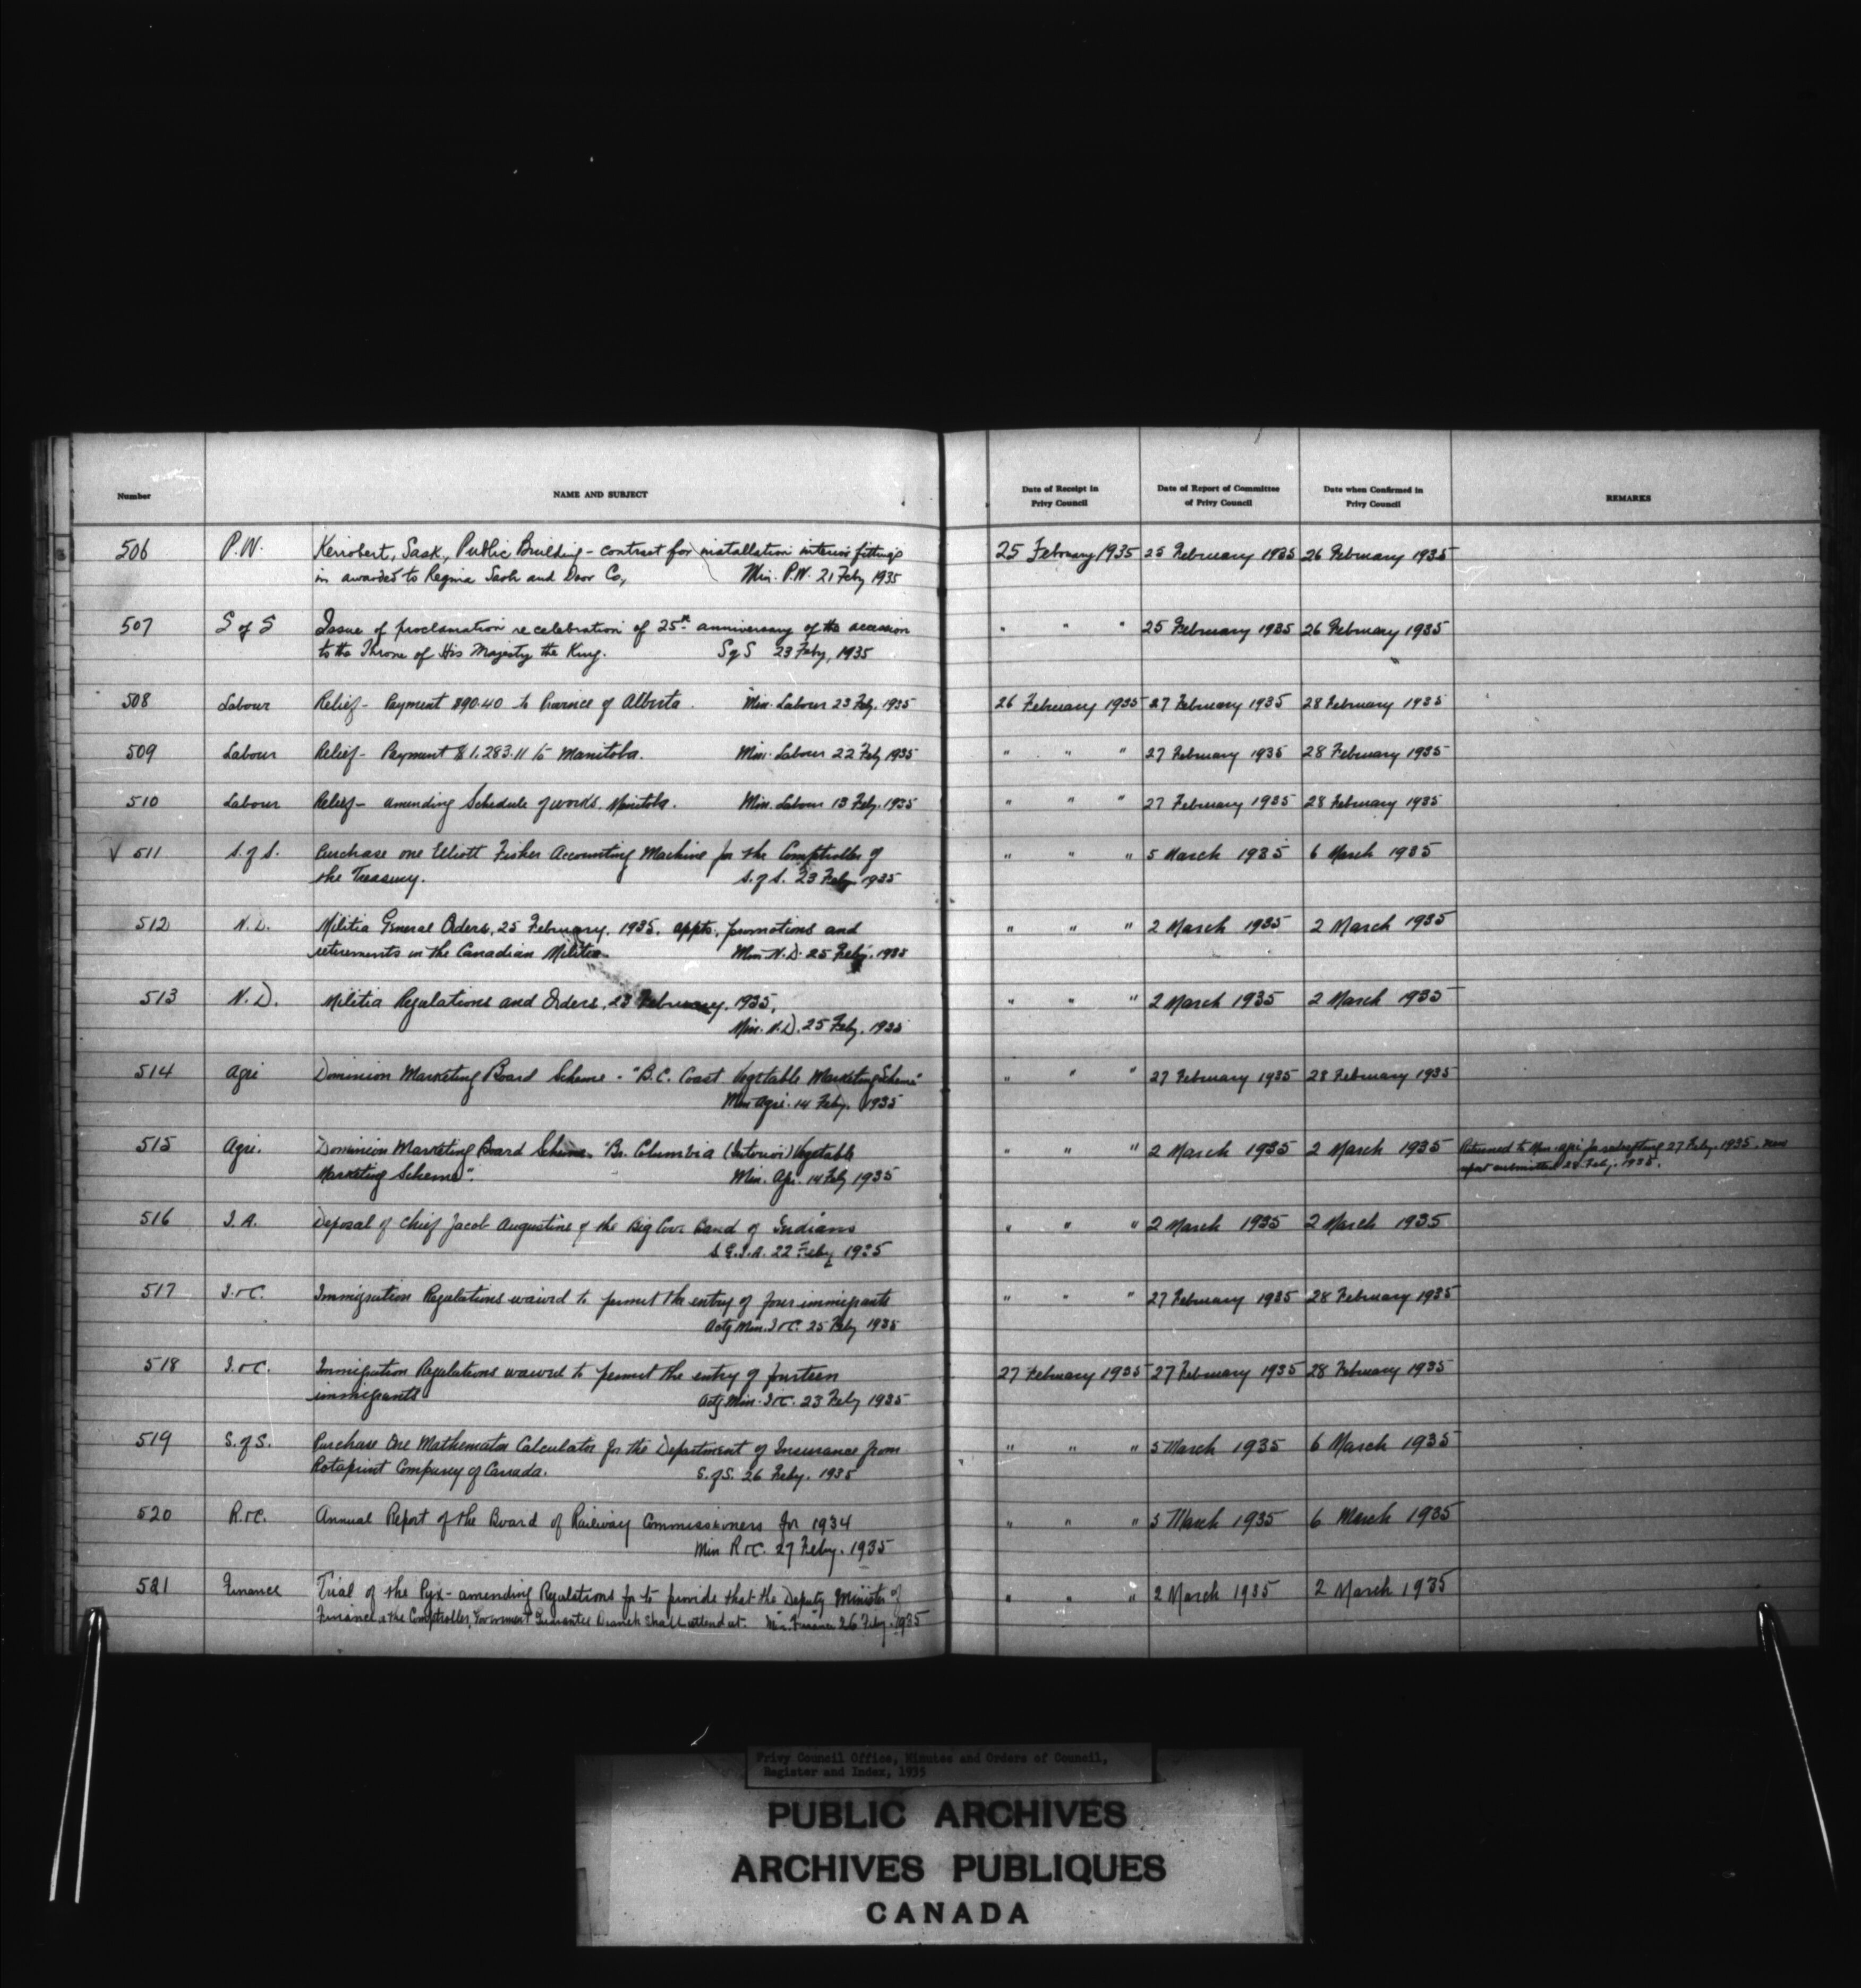 Number
NAME AND SUBJECT
Date of Receipt in
Privy Council
Date of Report of Committee
of Privy Council
Date when Confirmed in
Privy Council
REMARKS
506 P.W. Kerrobert, Sask., Public Building - contract for installation interior fittings 25 February 1935 25 February 1935 26 February 1935
in awarded to Regina Sash and Door Co, Min. P.W. 21 Feby 1935
507 S of S Issue of proclamation re celebration of 25th anniversary of the accession " " " 25 February 1935 26 February 1935
to the Throne of His Majesty the King. S of S 23 Feby, 1935
508 Labour Relief - Payment $90.40 to Province of Alberta. Min. Labour 23 Feby. 1935 26 February 1935 27 February 1935 28 February 1935
509 Labour Relief - Payment $1,283.11 to Manitoba. Min. Labour 22 Feby 1935 " " " 27 February 1935 28 February 1935
510 Labour Relief - amending Schedule of works, Manitoba. Min. Labour 13 Feby. 1935 " " " 27 February 1935 28 February 1935
√ 511 S. of S. Purchase one Elliott Fisher Accounting Machine for the Comptroller of " " " 5 March 1935 6 March 1935
the Treasury. S. of S. 23 Feby 1935
512 N.D. Militia General Orders, 25 February, 1935, appts, promotions and " " " 2 March 1935 2 March 1935
retirements in the Canadian Militia. Min. N.D. 25 Feby. 1935
513 N.D. Militia Regulations and Orders, 23 February, 1935, " " " 2 March 1935 2 March 1935
Min. N.D. 25 Feby. 1935
514 Agri Dominion Marketing Board Scheme - "B.C. Coast Vegetable Marketing Scheme" " " " 27 February 1935 28 February 1935
Min Agri. 14 Feby. 1935
515 Agri. Dominion Marketing Board Scheme "Br. Columbia (Interior) Vegetable " " " 2 March 1935 2 March 1935 Returned to Min. Agri for redrafting 27 Feby. 1935. New
Marketing Scheme". Min. Agri. 14 Feby 1935 report submitted 28 Feby. 1935.
516 I.A. Deposal of Chief Jacob Augustine of the Big Cove Band of Indians " " " 2 March 1935 2 March 1935
S.G.I.A. 22 Feby 1935
517 I. & C. Immigration Regulations waived to permit the entry of four immigrants " " " 27 February 1935 28 February 1935
Actg Min. I & C. 25 Feby 1935
518 I. & C. Immigration Regulations waived to permit the entry of fourteen 27 February 1935 27 February 1935 28 February 1935
immigrants Actg Min. I & C. 23 Feby 1935
519 S. of S. Purchase One Mathematon Calculator for the Department of Insurance from " " " 5 March 1935 6 March 1935
Rotaprint Company of Canada. S. of S. 26 Feby. 1935
520 R. & C. Annual Report of the Board of Railway Commissioners for 1934 " " " 5 March 1935 6 March 1935
Min R & C. 27 Feby. 1935
521 Finance Trial of the Pyx - amending Regulations for to provide that the Deputy Minister of " " " 2 March 1935 2 March 1935
Finance & the Comptroller, Government Guarantee Branch shall attend at. Min. Finance 26 Feby. 1935
Privy Council Office, Minutes and Orders of Council,
Register and Index, 1935
PUBLIC ARCHIVES
ARCHIVES PUBLIQUES
CANADA